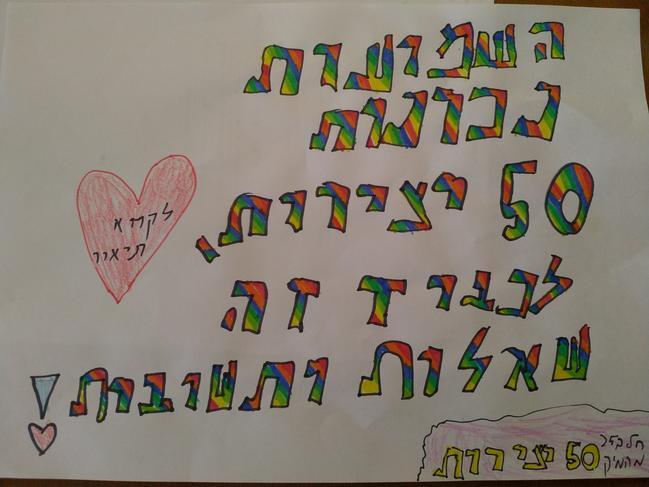 השמועות
נכונות
50 יצירות,
לכבוד זה
שאלות ותשובות!
לקרוא
תיאור
50 יצירות